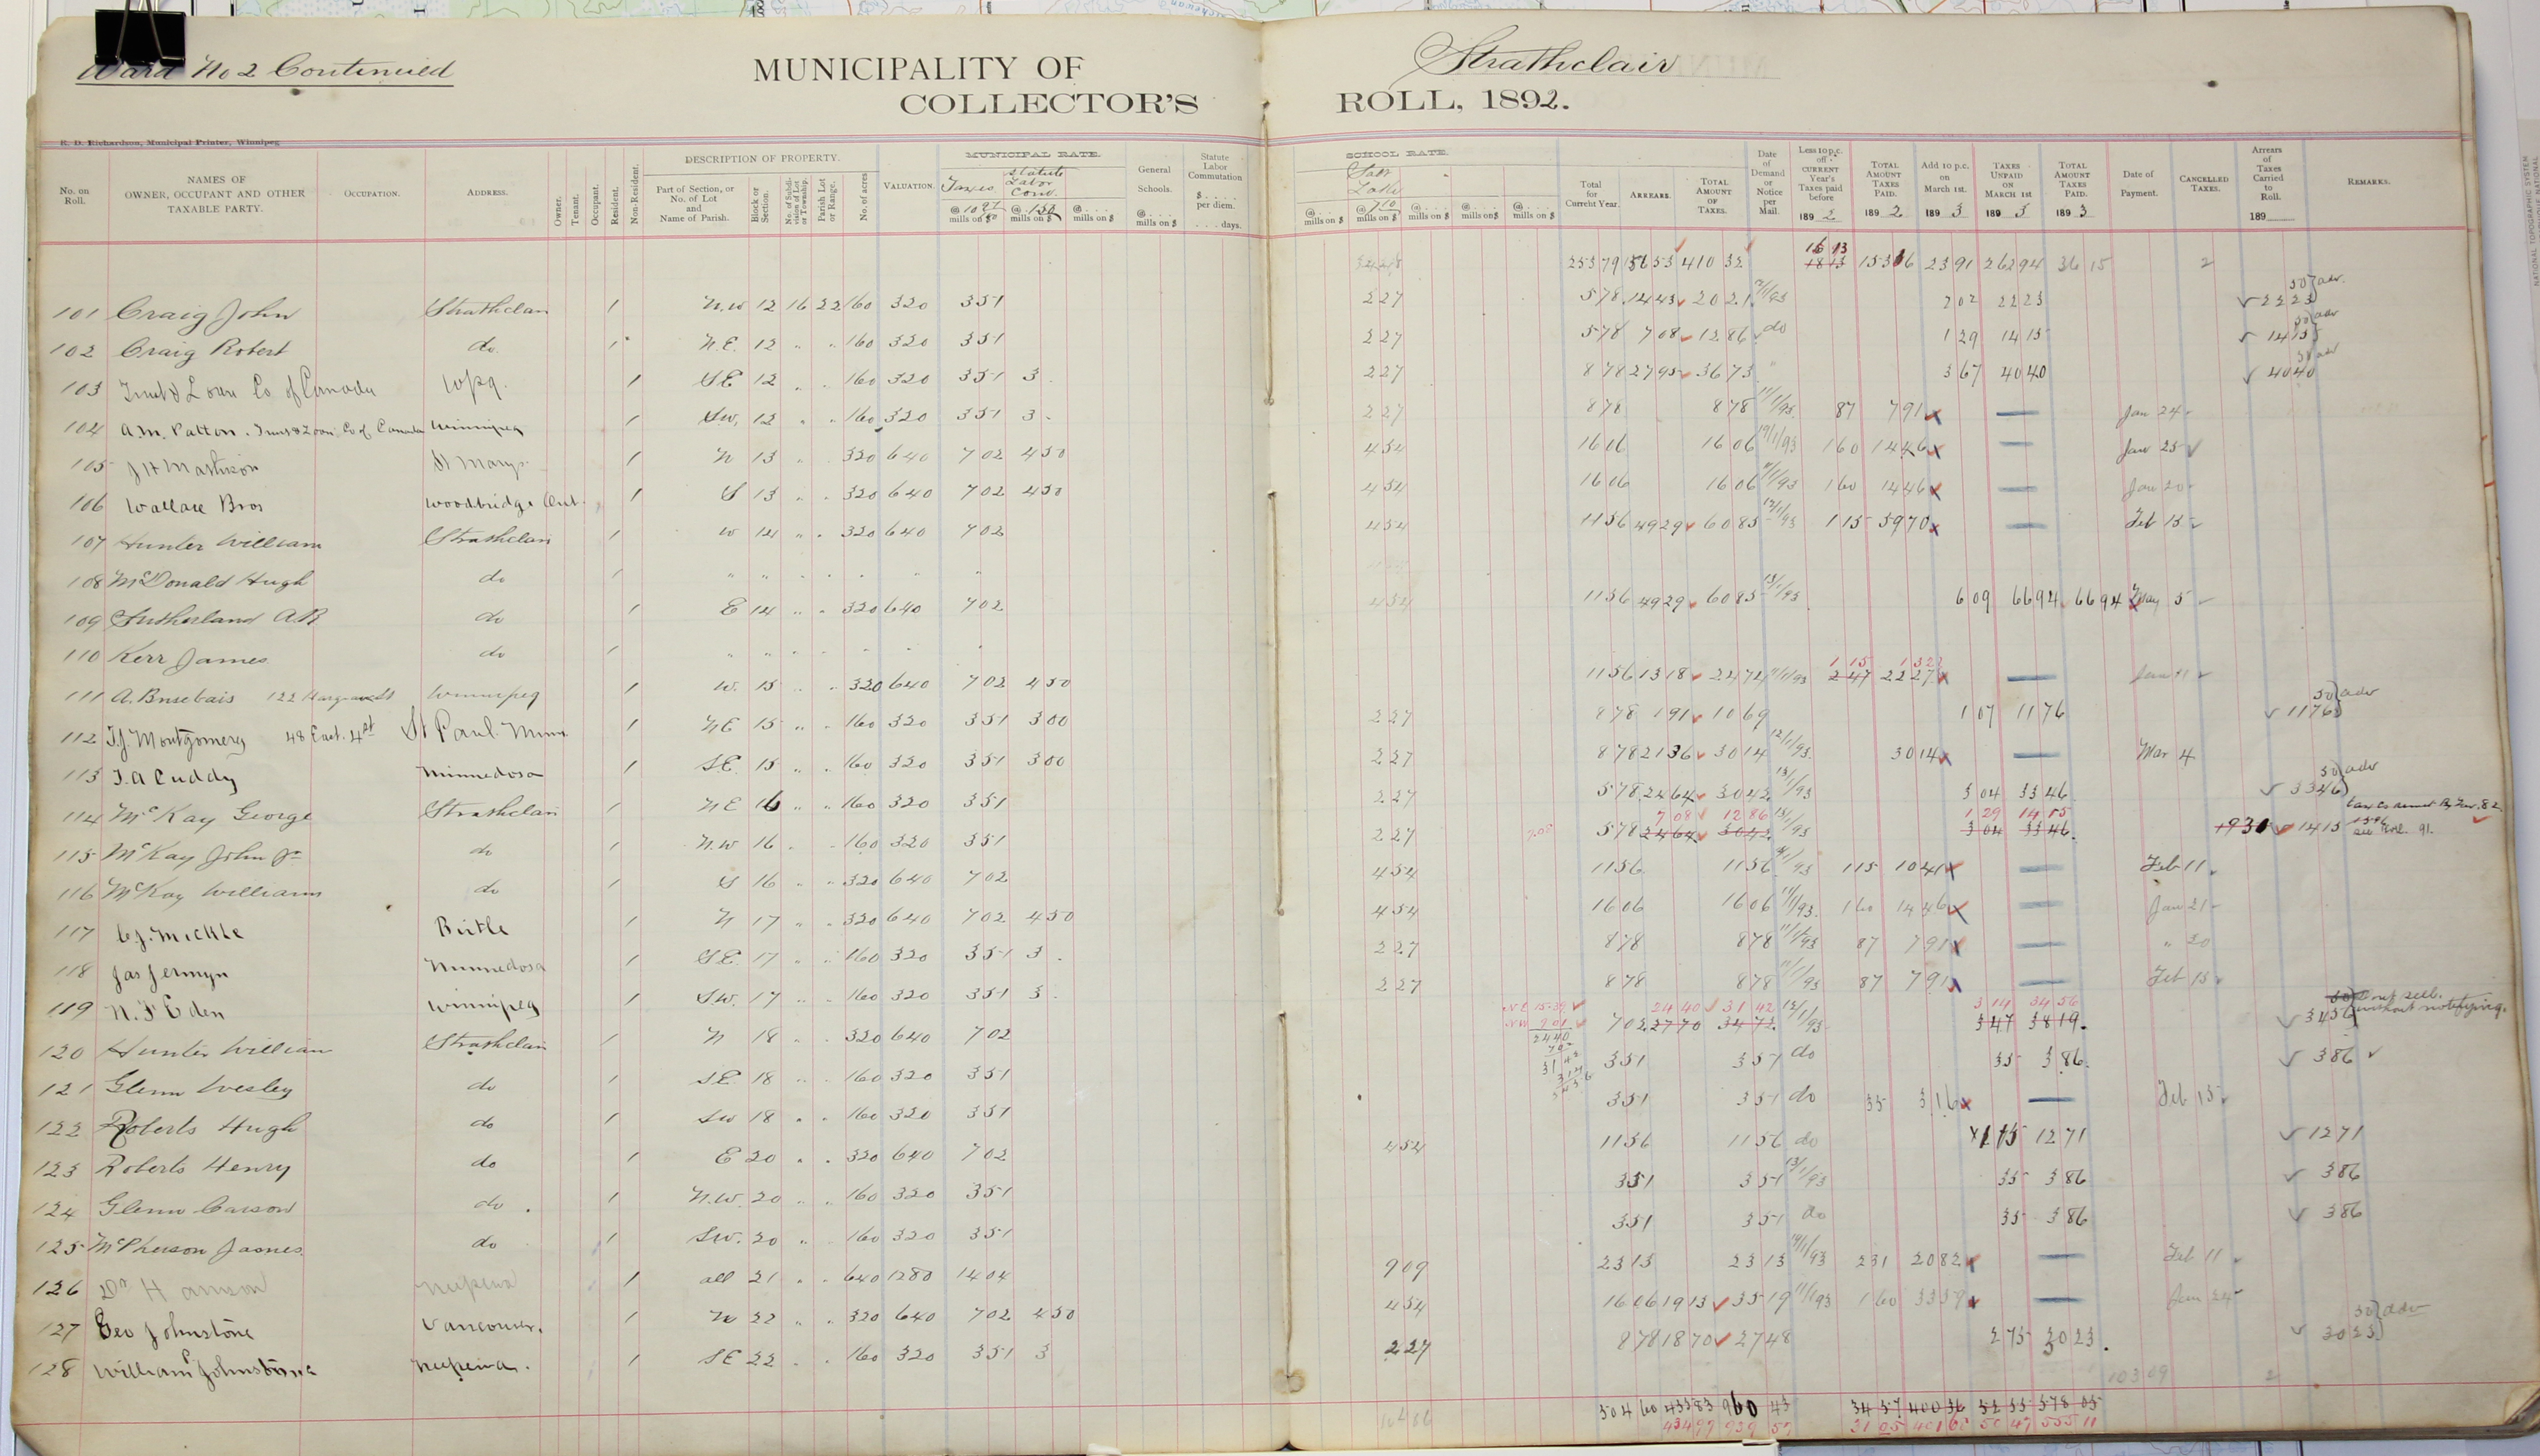 Ward No 2 Continued
MUNICIPALITY OF Strathclair
COLLECTOR'S ROLL, 1892.
R. D. Richardson, Municipal Printer, Winnipeg
No. on Roll. NAMES OF OWNER, OCCUPANT AND OTHER TAXABLE PARTY. OCCUPATION. ADDRESS. Owner. Tenant. Occupant. Resident. Non-Resident. DESCRIPTION OF PROPERTY. Part of Section, or No. of Lot and Name of Parish. Block or Section. No. of Subdivision of Lot or Township. Parish Lot or Range. No. of acres. VALUATION. MUNICIPAL RATE. Taxes Statute Labor Com. @ mills on $ General Schools. @ mills on $ Statute Labor Commutation $ per diem. days. SCHOOL RATE. Salt Lake @ 710 mills on $ Total for Current Year. ARREARS. TOTAL AMOUNT OF TAXES. Date of Demand or Notice per Mail. Less 10 p.c. off Current Year's Taxes paid before 1892 TOTAL AMOUNT TAXES PAID. 1892 Add 10 p.c. on March 1st. 1893 TAXES UNPAID ON MARCH 1st 1893 TOTAL AMOUNT TAXES PAID. 1893 Date of Payment. CANCELLED TAXES. Arrears of Taxes Carried to Roll. 189 REMARKS.
253 79 156 53 410 32 16 13 153 16 23 91 262 94 36 15 2
101 Craig John Strathclair 1 N.W 12 16 22 160 320 351 227 578 1443 2021 202 2223 2223 50 adv.
102 Craig Robert do. 1 N.E. 12 " " 160 320 351 227 578 708 1286 do 129 1415 1415 50 adv
103 Trust & Loan Co of Canada Wpg. 1 SE 12 " " 160 320 351 3 227 878 2795 3673 " 367 4040 4040 50 adv
104 A.M. Patton. Trust & Loan Co of Canada Winnipeg 1 SW. 12 " " 160 320 351 3 227 878 878 11/1/93 87 791 — Jan 24
105 J H Mathison St Marys 1 N 13 " 320 640 702 450 454 1606 1606 19/1/93 160 1446 — Jan 25
106 Wallace Bros Woodbridge Ont. 1 S 13 " " 320 640 702 450 454 1606 1606 11/1/93 160 1446 — Jan 20
107 Hunter William Strathclair 1 W 14 " " 320 640 702 454 1156 4929 6085 12/1/93 115 5970 — Feb 15
108 McDonald Hugh do 1 " " " " " " "
109 Sutherland AR do 1 E 14 " " 320 640 702 454 1156 4929 6085 13/1/93 609 6694 6694 May 5
110 Kerr James do 1 " " " " " " "
111 A. 122 Hargrave St Winnipeg 1 W. 15 " " 320 640 702 450 1156 1318 2474 11/1/93 115 247 2227 — Jan
112 T.J. Montgomery 48 East. 4st St Paul. Minn. 1 NE 15 " " 160 320 351 300 227 878 191 1069 107 1176 1176 50 adv
113 T.A Cuddy Minnedosa 1 SE. 15 " " 160 320 351 300 227 878 2136 3014 12/1/93. 3014 — Mar 4
114 McKay George Strathclair 1 NE 16 " " 160 320 351 227 578 2464 3042 13/1/93 304 3346 3346 50 adv
115 McKay John Jr do 1 N.W 16 " 160 320 351 227 708 578 2464 708 3042 1286 13/1/93 304 129 3346 1415 1930 1415 see Roll 91.
116 McKay William do 1 S 16 " " 320 640 702 454 1156 1156 115 1041 — Feb 11
117 C.J. Mickle Birtle 1 N 17 " " 320 640 702 450 454 1606 1606 11/1/93. 160 1446 — Jan 21
118 Jas Jermyn Minnedosa 1 SE. 17 " " 160 320 351 3 227 878 878 11/1/93 87 791 — " 20
119 N. F Eden Winnipeg 1 SW. 17 " " 160 320 351 3 227 878 878 11/1/93 87 791 — Feb 15
120 Hunter William Strathclair 1 N 18 " " 320 640 702 N.E 15.39 N.W 901 2440 702 3142 314 3456 702 2770 2440 3472 3142 13/1/93 347 314 3819 3456 3456 dont sell. without notifying.
121 Glenn Wesley do 1 SE. 18 " " 160 320 351 351 351 do 35 386 386
122 Roberts Hugh do 1 SW 18 " " 160 320 351 351 351 do 35 316 — Feb 15
123 Roberts Henry do 1 E 20 " " 320 640 702 454 1156 1156 do 115 1271 1271
124 Glenn Carson do. 1 N.W. 20 " " 160 320 351 351 351 13/1/93 35 386 386
125 McPherson James do 1 SW. 20 " 160 320 351 351 351 do 35 386 386
126 Dr Harrison Neepawa 1 all 21 " " 640 1280 1404 909 2313 2313 19/1/93 231 2082 — Feb 11
127 Geo Johnstone Vancouver. 1 N 22 " " 320 640 702 450 454 1606 1913 3519 11/1/93 160 3359 — Jan 24
128 William Johnstone Neepawa. 1 SE 22 " " 160 320 351 3 227 878 1870 2748 275 3023 3023 50 adv
103 09 2
104 86 504 60 455 83 960 43 34 57 400 36 52 55 578 05
434 97 939 57 31 25 401 68 50 47 555 11